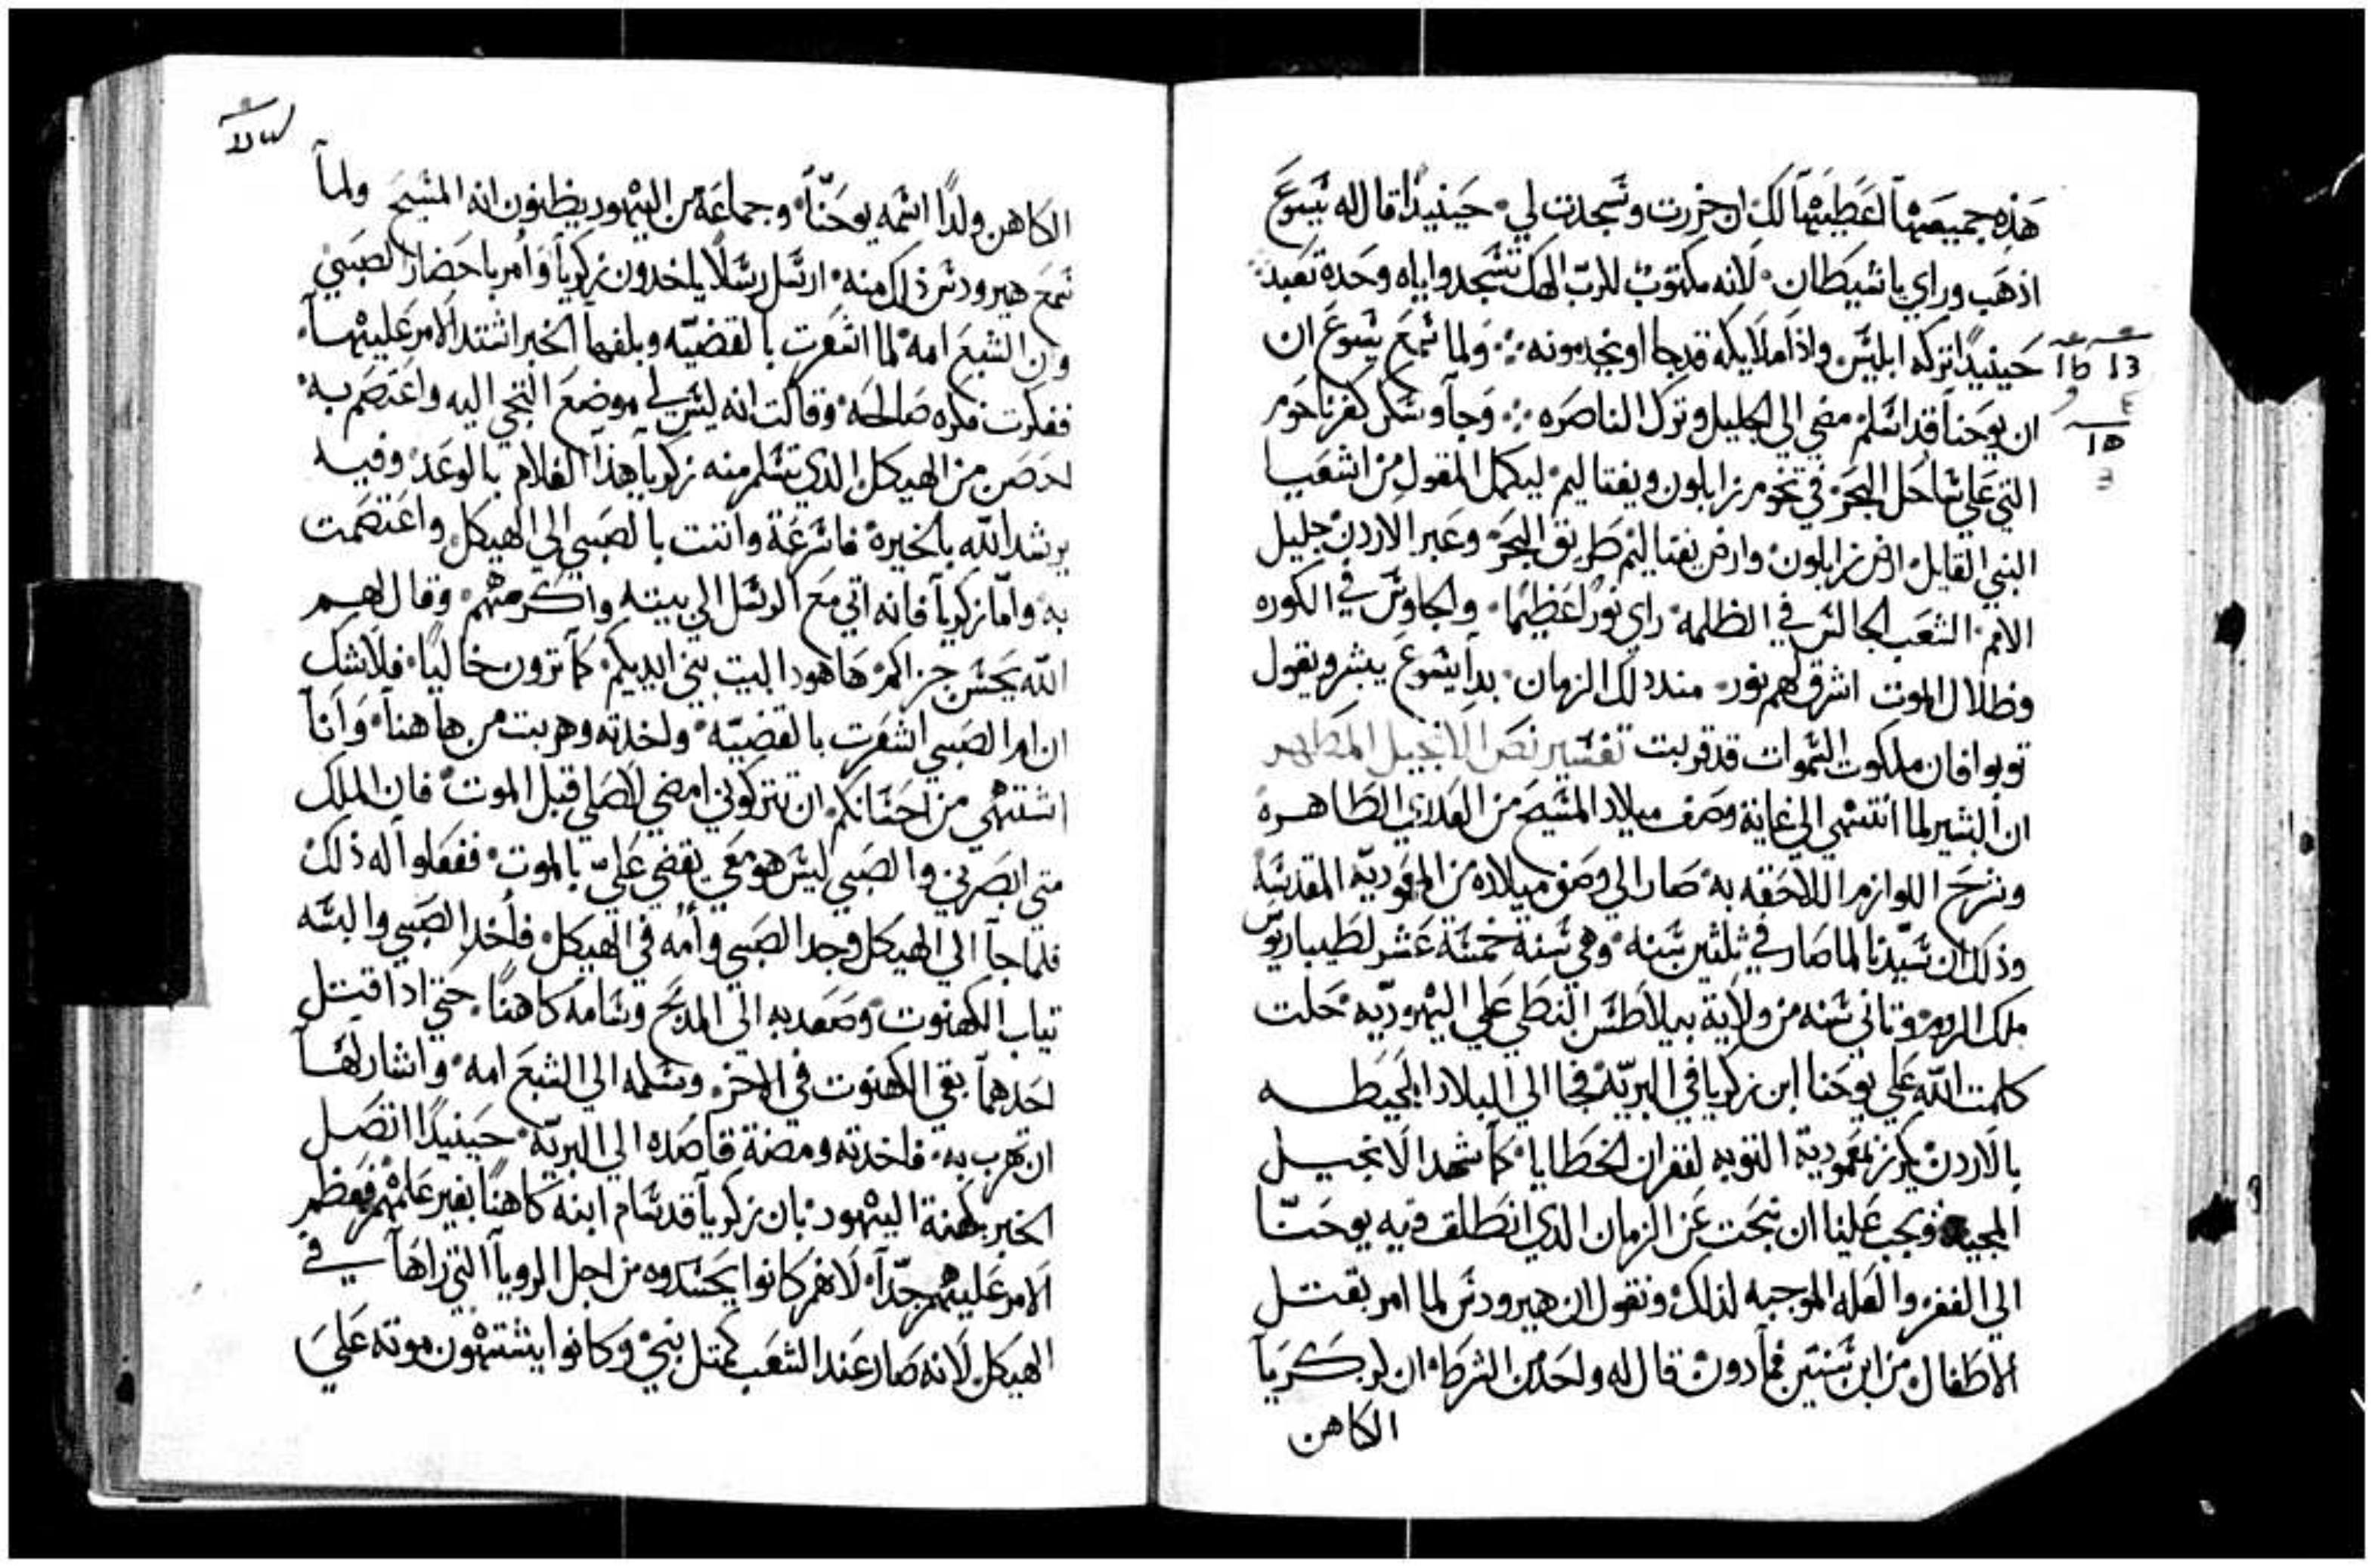 هذه جميعها اعطيها لك ان خررت وسجدت لي حينيدا قال له يسوع
اذهب وراي يا شيطان لانه مكتوب للرب الهك تسجد واياه وحدة تعبد
حينيدا تركه ابليس واذا ملايكه قد جاا ويخدمونه ولما سمع يسوع ان
ان يوحنا قد اسلم مضي الي الجليل وترك الناصره وجآ وسكن كفرناحوم
التي علي ساحل البحر في تخوم زابلون ويفتاليم ليكمل المقول من اشعيا
النبي القايل ارض زابلون وارض يفتاليم طريق البحر وعبر الاردن جليل
الامم الشعب الجالس في الظلمه راي نورًا عظيمًا والجلوس في الكوره
وظلال الموت اشرق لهم نور مند دلك الزمان بدا يسوع يبشر ويقول
توبوا فان ملكوت السموات قد قربت تفسير نص الانجيل المطهر
ان البشير لما انتهي الي غاية وصف ميلاد المسيح من العدري الطاهره
وشرح اللوازم اللاحقه به صار الي وصف ميلاده من المعموديه المقدسة
وذلك ان سيدنا لما صار في ثلثين سنه وهي سنة خمسة عشر لطيباريوس
ملك الروم وتاني سنه من ولاية بيلاطس النبطي علي اليهوديه حلت
كلمت الله علي يوحنا ابن زكريا في البريه فجا الي البلاد المحيطه
بالاردن يكرز بمعمودية التوبه لغفران الخطايا كما شهد الانجيل
المجيد ويجب علينا ان نبحت عن الزمان الدي انطلق فيه يوحنا
الي القفر والعله الموجبه لذلك ونقول ان هيرودس لما امر بقتل
الاطفال من ابن سنتين فما دون قال له واحد من الشرط ان لزكريآ
الكاهن
الكاهن ولدًا اسمه يوحنا وجماعة من اليهود يظنون انه المسيح ولمآ
سمع هيرودس ذلك منه ارسل رسلًا ياخدون زكريآ وأمر باحضار الصبي
وان اليشبع امه لما اشعرت بالقضيه وبلغها الخبر اشتد الامر عليها
ففكرت فكره صالحه وقالت انه ليس لي موضع التجي اليه واعتصم به
احصن من الهيكل الدي تسلم منه زكريآ هذا الغلام بالوعد وفيه
يرشد الله بالخيره فاسرعة واتت بالصبي الي الهيكل واعتصمت
به وامّا زكريآ فانه اتي مع الرسل الي بيته واكرمهم وقال لهم
الله يحسن جزاكم ها هودا البيت بين ايديكم كما ترون خاليًا فلا شك
ان ام الصبي اشعرت بالقضيه واخدته وهربت من هاهنا وانآ
اشتهي من احسانكم ان تتركوني امضي لاصلي قبل الموت فان الملك
متي ابصرني والصبي ليس هو معي يقضي علي بالموت ففعلوا له ذلك
فلما جآ الي الهيكل وجد الصبي وأمه في الهيكل فأخد الصبي والبسه
تياب الكهنوت وصعد به الي المدبح وسامه كاهنًا حتي ادا قتل
احدهما بقي الكهنوت في الاخر وسلمه الي اليشبع امه واشار لها
ان تهرب به فاخدته ومضة قاصده الي البريه حينيدا اتصل
الخبر بكهنة اليهود بان زكريآ قد سام ابنه كاهنًا بغير علمهم فعظم
الامر عليهم جدًا لانهم كانوا يحسدوه من اجل الرويا التي راها في
الهيكل لانه صار عند الشعب كمتل نبي وكانوا يشتهون موته علي